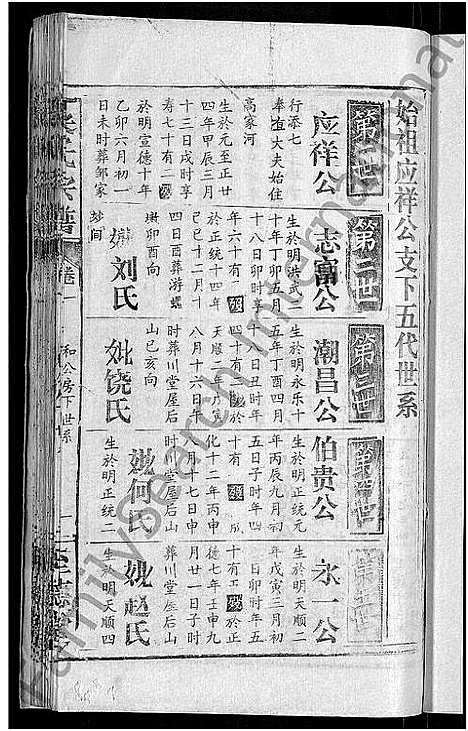 始祖应祥公支下五代世系
第一世
应祥公
行添七
奉直大夫始住
高家河
生於元至正廿
四年甲辰三月
十三日戌时享
寿七十有二
於明宣德十年
乙卯六月初一
日未时葬邹家
第二世
志富公
生於明洪武二
十年丁卯五月
十八日卯时享
年六十有一
於正统十四年
己巳十二月十
四日酉葬游
刘氏
第三世
潮昌公
生於明永乐十
五年丁酉四月
十八日丑时年
四十有
八月十六日年
时葬川堂屋后
山巳亥向
妣饶氏
第四世
伯贵公
生於明正统元
年丙辰九月初
五日子时年四
十有
化十二年丙申
月十七日申
时川堂屋后山
妣何氏
生於明正统二
第五世
永一公
生於明天顺二
年戊寅三月初
日卯时年五
十有五
德七年壬申九
月廿一日子时
葬川堂屋后山
妣赵氏
生於明天顺四
氏宗谱
卷一
和公房下世系